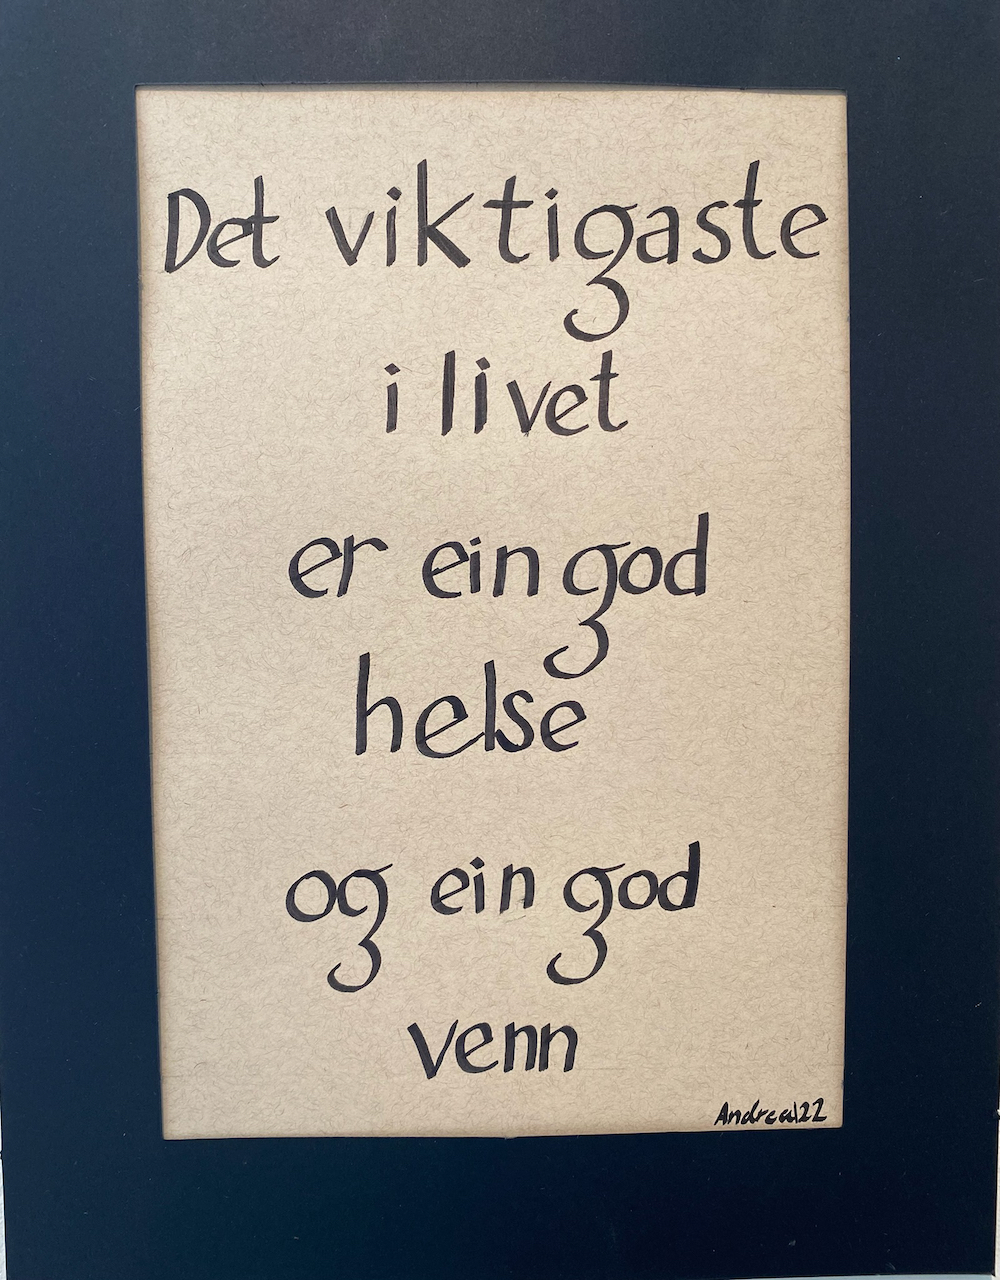 Det viktigaste
i livet
er ein god
helse
og ein god
venn
Andrea22